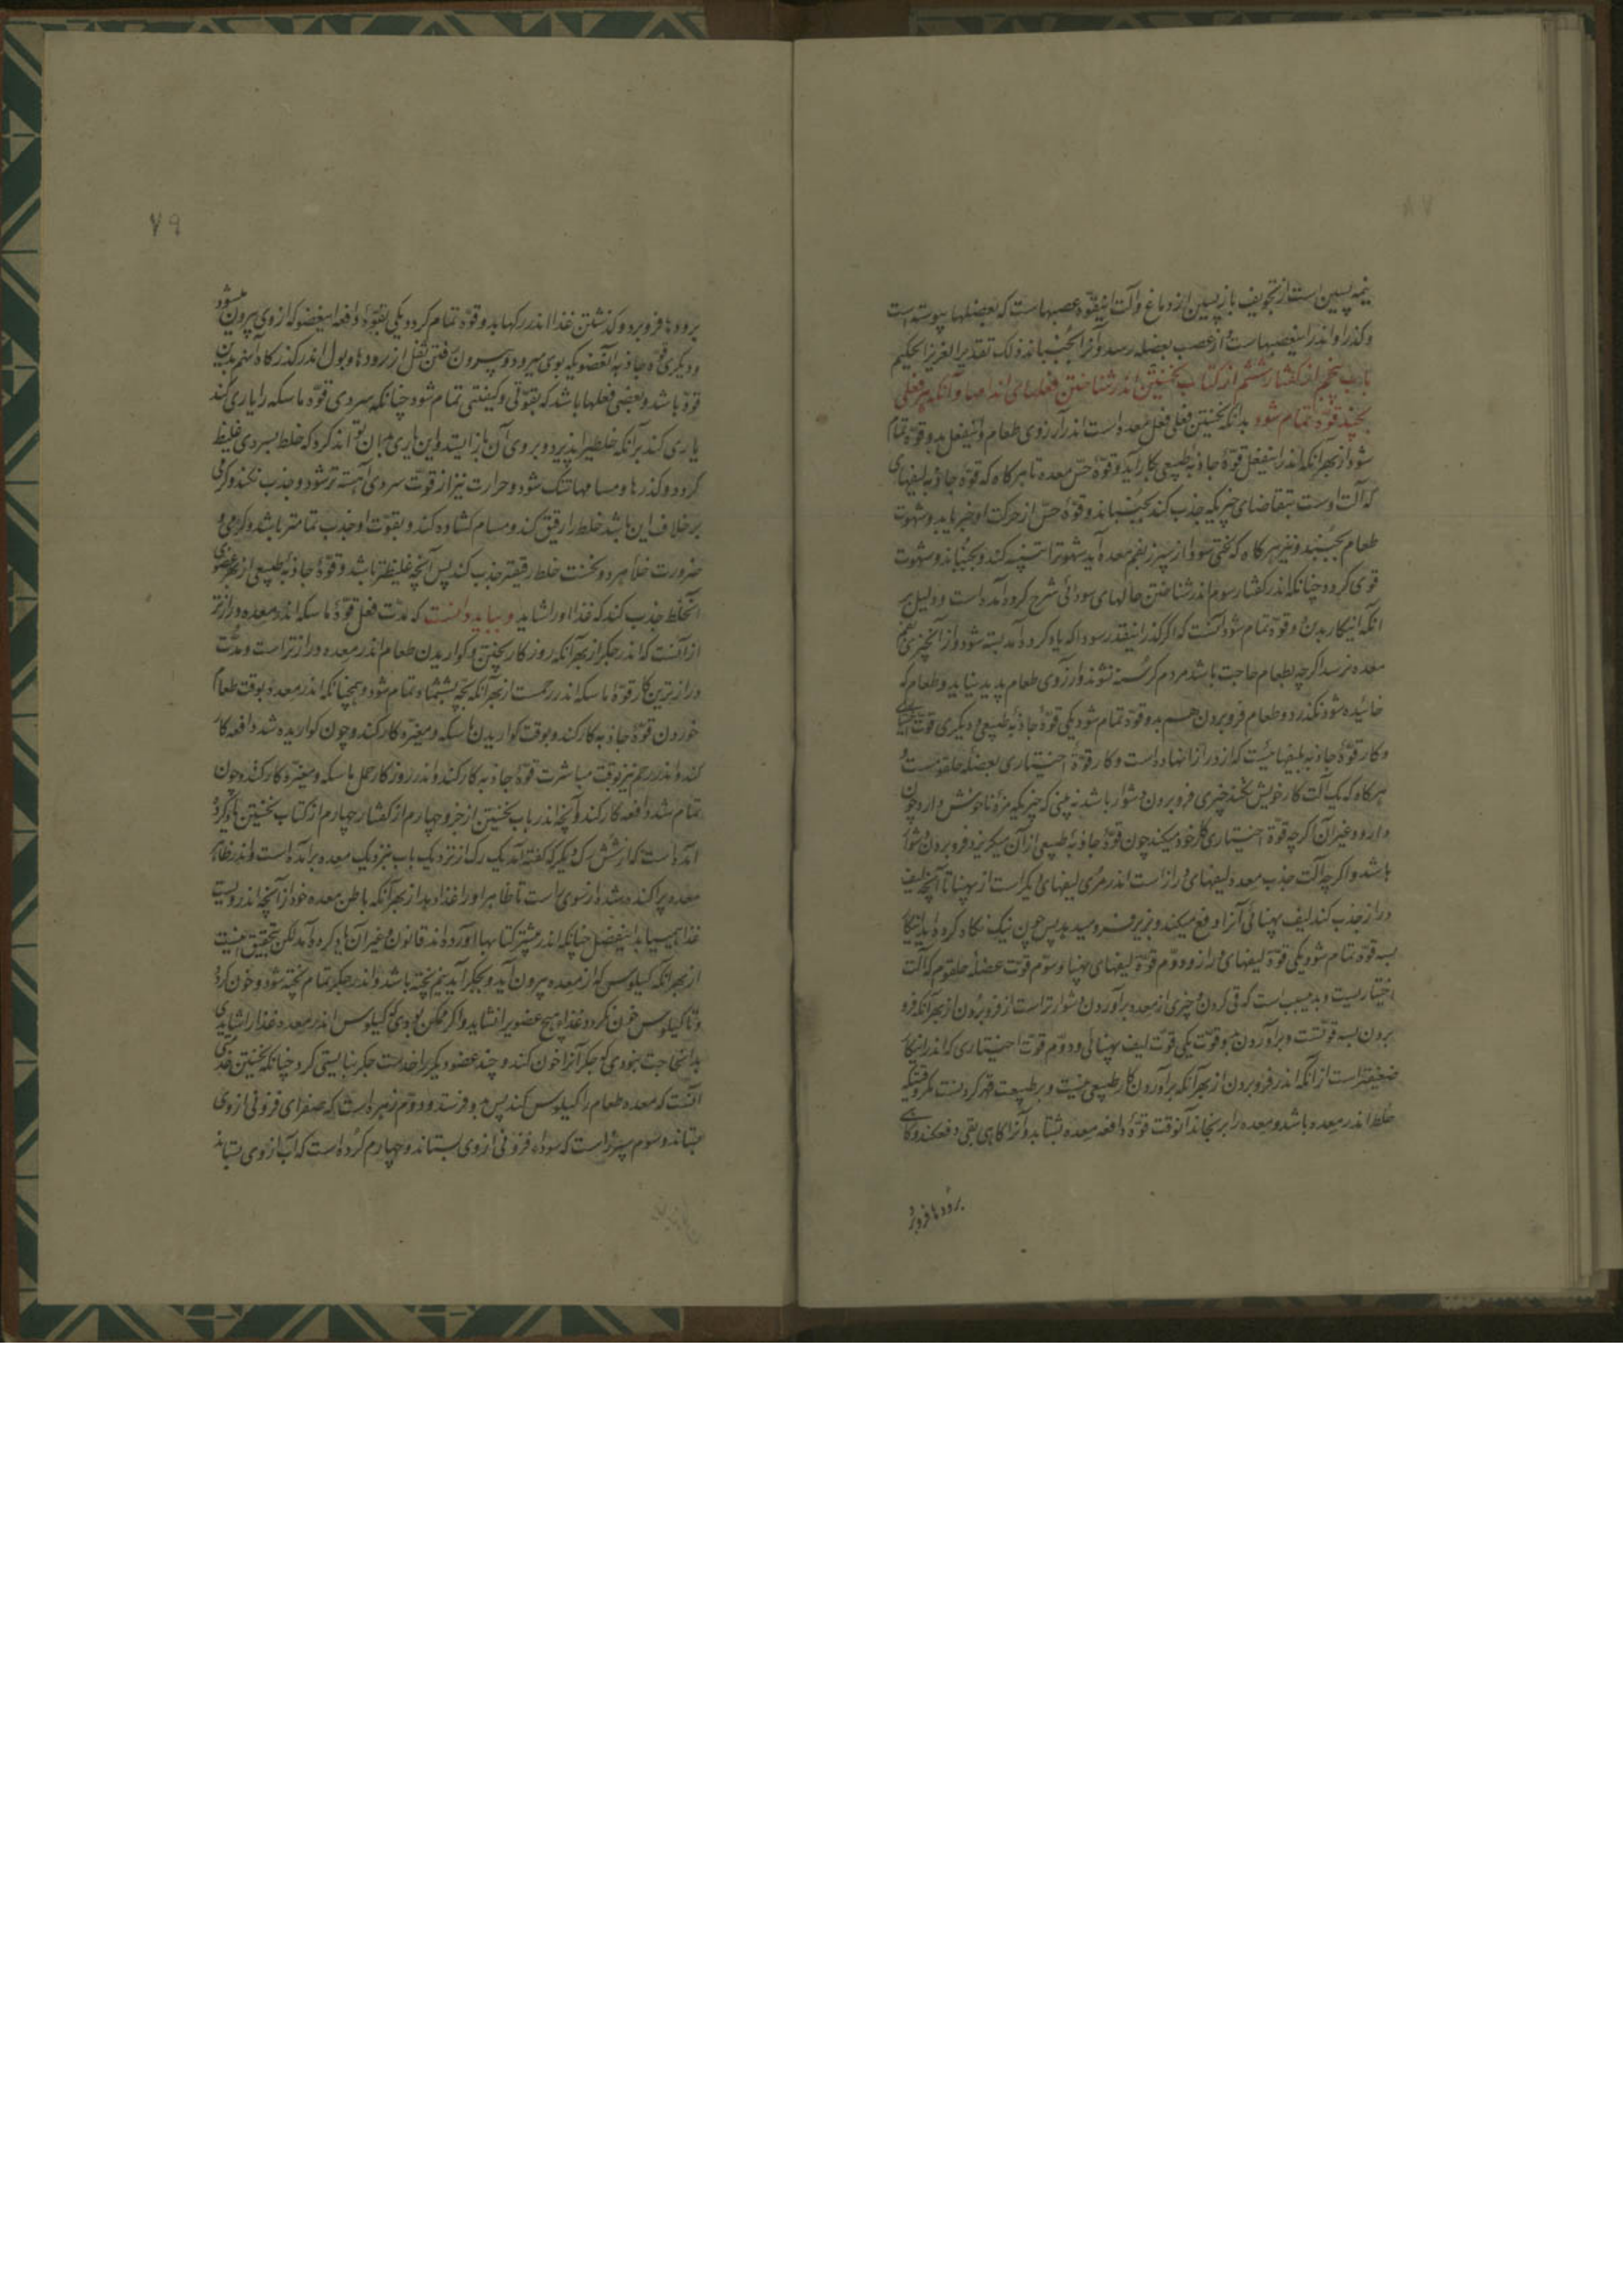 نیمه پسین است از تجویف بازپسین از دماغ و آلت اینقوّه عصبهاست که بعضلها پیوسته است
و گذر او اندر اینعصبهاست و از عصب بعضله رسد و آنرا بجنباند ذلک تقدیر العزیز الحکیم
باب پنجم از گفتار ششم از کتاب نخستین اندر شناختن فعلهای اندامها و آنکه هر فعلی
بچند قوّة تمام شود بدانکه نخستین فعلی فعل معده است اندر آرزوی طعام و اینفعل بدو قوّة تمام
شود از بهر آنکه اندر اینفعل قوّة جاذبه طبیعی بکار آید و قوّة حسّ معده تا هر کاه که قوّة جاذبه لیفهای
که آلت اوست بتقاضای چیزیکه جذب کند بجنباند و قوّة حسّ از حرکت او خبر یابد و شهوت
طعام بجنبد و نیز هر کاه که از سپرز بفم معده آید شهوترا تنبیه کند و بجنباند و شهوت
قوی کردد چنانکه اندر کفتار سوم اندر شناختن حالهای سودائی شرح کرده آمده است و دلیل بر
آنکه اینکار بدین دو قوّة تمام شود آنست که اگر گذر اینقدر سودا که یاد کرده آمد بسته شود و از آن چیزی بفم
معده نرسد اکرچه بطعام حاجت باشد مردم کرسنه نشود و آرزوی طعام پدید نیاید و طعام که
خائیده شود بگذرد و طعام فروبردن هم بدو قوّة تمام شود یکی قوّة جاذبه طبیعی و دیکری قوّت
و کار قوّة جاذبه بلیفهائیست که از درازا نهاده است و کار قوّة اختیاری بعضله حلقومست و
هرکاه که یک آلت کار خویش نکند چیزی فروبردن دشوار باشد نه بینی که چیزیکه مزه ناخوش دارد چون
دارو و غیر آن اکرچه قوّة اختیاری کار خود میکند چون قوّة جاذبه طبیعی از آن میکریزد فروبردن دشوار
باشد و اکرچه آلت جذب معده لیفهای دراز است اندر مری لیفهای دیکر است از پهنا تا آنچه لیف
دراز جذب کند لیف پهنائی آنرا دفع میکند و بزیر فرو میدهد پس چون نیک نکاه کرده آید اینکار
بسه قوّة تمام شود یکی قوّة لیفهای دراز و دوّم قوّة لیفهای پهنا و سوّم قوّت عضله حلقوم که آلت
اختیاریست و بدین سبب است که قی کردن و چیزی از معده برآوردن دشوارتر است از فروبردن از بهر آنکه فرو
بردن بسه قوّتست و برآوردن بدو قوّت یکی قوّت لیف پهنائی و دوّم قوّت اختیاری که اندر اینکار
ضعیفتر است از آنکه اندر فروبردن از بهر آنکه برآوردن کار طبیعی نیست و بر طبیعت قهر کردنست مکر وقتیکه
خلط اندر معده باشد و معده را برنجاند آنوقت قوّة دافعه معده بشتابد و آنرا کاهی بقی دفع کند و کاهی
برودها فروبرد
٧٩
برودها فروبرد و کذشتن غذا اندر رکها بدو قوّة تمام کردد یکی بقوّة دافعه اینعضو که از وی بیرون میشود
و دیکری قوّة جاذبه آنعضو که بوی میرود و بیرون رفتن ثفل از رودها و بول اندر کذرکاه آن هم بدین
قوّة باشد و بعضی فعلها باشد که بقوّتی و کیفیتی تمام شود چنانکه سردی قوّة ماسکه را یاری کند
یاری کند بر آنکه خلطیرا بپذیرد و بر وی آن باز ایستد و این یاری بدان تواند کرد که خلط بسردی غلیظ
کردد و کذرها و مسامها تنک شود و حرارت نیز از قوّت سردی آهسته تر شود و جذب نکند و کرمی
برخلاف این باشد خلط را رقیق کند و مسام کشاده کند و بقوّت او جذب تمامتر باشد و کرمی و
ضرورت خلاء هر دو نخست خلط رقیقتر جذب کند پس آنچه غلیظتر باشد و قوّة جاذبه طبیعی از بهر عضوی
آنخلط جذب کند که غذا او را شاید و بباید دانست که مدّت فعل قوّة ماسکه اندر معده درازتر
از آنست که اندر جکر از بهر آنکه روزکار پختن و کواریدن طعام اندر معده درازتر است و مدّت
درازترین کار قوّة ماسکه اندر رحمست از بهر آنکه بچه بششماه تمام شود و همچنانکه اندر معده بوقت طعام
خوردن قوّة جاذبه کار کند و بوقت کواریدن ماسکه و مغیّره کار کند و چون کواریده شد دافعه کار
کند و اندر رحم نیز بوقت مباشرت قوّة جاذبه کار کند و اندر روزکار حمل ماسکه و مغیّره کار کند و چون
تمام شد دافعه کار کند و آنچه اندر باب نخستین از جزو چهارم از کفتار چهارم از کتاب نخستین یاد کرده
آمده است که از شش رک دیکر که کفته آمد یک رک از نزدیک باب بنزدیک معده برآمده است و اندر ظاهر
معده پراکنده شده از سوی راست تا ظاهر او را غذا دهد از بهر آنکه باطن معده خود از آنچه اندر ویست
غذا همی یابد اینفصل چنانکه اندر بیشتر کتابها آورده اند قانون و غیر آن یاد کرده آمد لکن تحقیق اینست
از بهر آنکه کیلوس که از معده بیرون آید و بجکر آید نیم پخته باشد و اندر جکر تمام پخته شود و خون کردد
و تا کیلوس خون نکردد غذای هیچ عضو را نشاید و اکر ممکن بودی که کیلوس اندر معده غذا را شایدی
بدان حاجت نبودی که جکر آنرا خون کند و چند عضو دیکر را خدمت جکر نبایستی کرد چنانکه نخستین خدمتی
آنست که معده طعام را کیلوس کند پس بدو فرستد و دوّم زهره است که صفرای فزونی از وی
بستاند و سوم سپرز است که سوداء فزونی از وی بستاند و چهارم کرده است که آب از وی بستاند